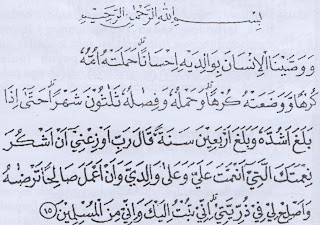 بِسْمِ اللهِ الرَّحْمٰنِ الرَّحِيْمِ
وَوَصَّيْنَا الْاِنْسَانَ بِوَالِدَيْهِ اِحْسَانًا حَمَلَتْهُ اُمُّهٗ
كُرْهًا وَّوَضَعَتْهُ كُرْهًا وَحَمْلُهٗ وَفِصٰلُهٗ ثَلٰثُوْنَ شَهْرًا حَتّٰى اِذَا
بَلَغَ اَشُدَّهٗ وَبَلَغَ اَرْبَعِيْنَ سَنَةً قَالَ رَبِّ اَوْزِعْنِيْ اَنْ اَشْكُرَ
نِعْمَتَكَ الَّتِيْ اَنْعَمْتَ عَلَيَّ وَعَلٰى وَالِدَيَّ وَاَنْ اَعْمَلَ صَالِحًا تَرْضٰهُ
وَاَصْلِحْ لِيْ فِيْ ذُرِّيَّتِيْ اِنِّيْ تُبْتُ اِلَيْكَ وَاِنِّيْ مِنَ الْمُسْلِمِيْنَ ﴿١٥﴾